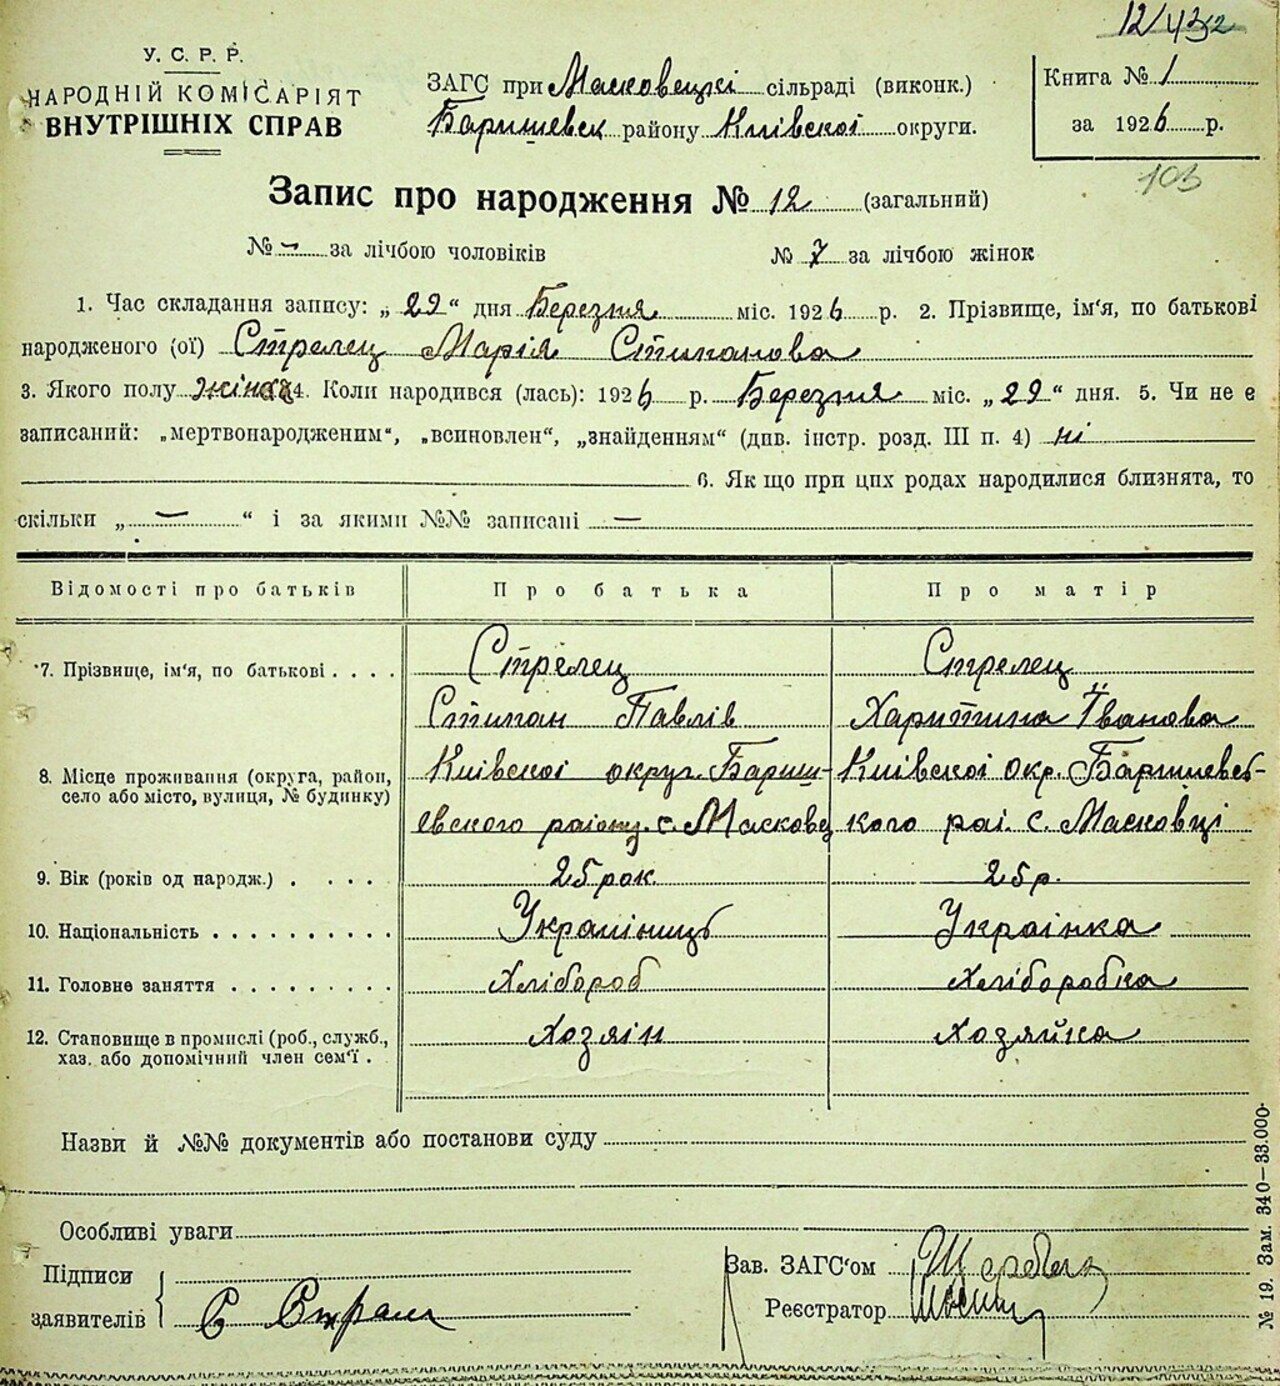 12/432
У. С. Р. Р.
НАРОДНІЙ КОМІСАРІЯТ
ВНУТРІШНІХ СПРАВ
ЗАГС при Масковецкі сільраді (виконк.)
Баришевск району Київскоі округи.
Книга № 1
за 1926 р.
103
Запис про народження № 12 (загальний)
№ – за лічбою чоловіків № 7 за лічбою жінок
1. Час складання запису: „29“ дня Березня міс. 1926 р. 2. Прізвище, ім‘я, по батькові
народженого (ої) Стрелец Марія Стипанова
3. Якого полу жіноч 4. Коли народився (лась): 1926 р. Березня міс. „29“ дня. 5. Чи не є
записаний: „мертвонародженим“, „всиновлен“, „знайденням“ (див. інстр. розд. III п. 4) ні
6. Як що при цих родах народилися близнята, то
скільки „ — “ і за якими №№ записані —
Відомості про батьків Про батька Про матір
7. Прізвище, ім‘я, по батькові . . . . Стрелец Стрелец
Стипан Павлів Харитина Іванова
8. Місце проживання (округа, район, Київскоі округ. Бариш- Київскоі окр. Баришевсь-
село або місто, вулиця, № будинку) евского району. с. Масковц кого раі. с. Масковці
9. Вік (років од народж.) . . . . 25 рок. 25 р.
10. Національність . . . . . . . . . . Украініць Украінка
11. Головне заняття . . . . . . . . . Хлібороб Хліборобка
12. Становище в промислі (роб., служб., Хозяін Хозяйка
хаз. або допомічний член сем‘ї .
Назви й №№ документів або постанови суду
Особливі уваги
Підписи
заявителів
С Стрел
Зав. ЗАГС‘ом
Реєстратор
№ 19. Зам. 340—33.000